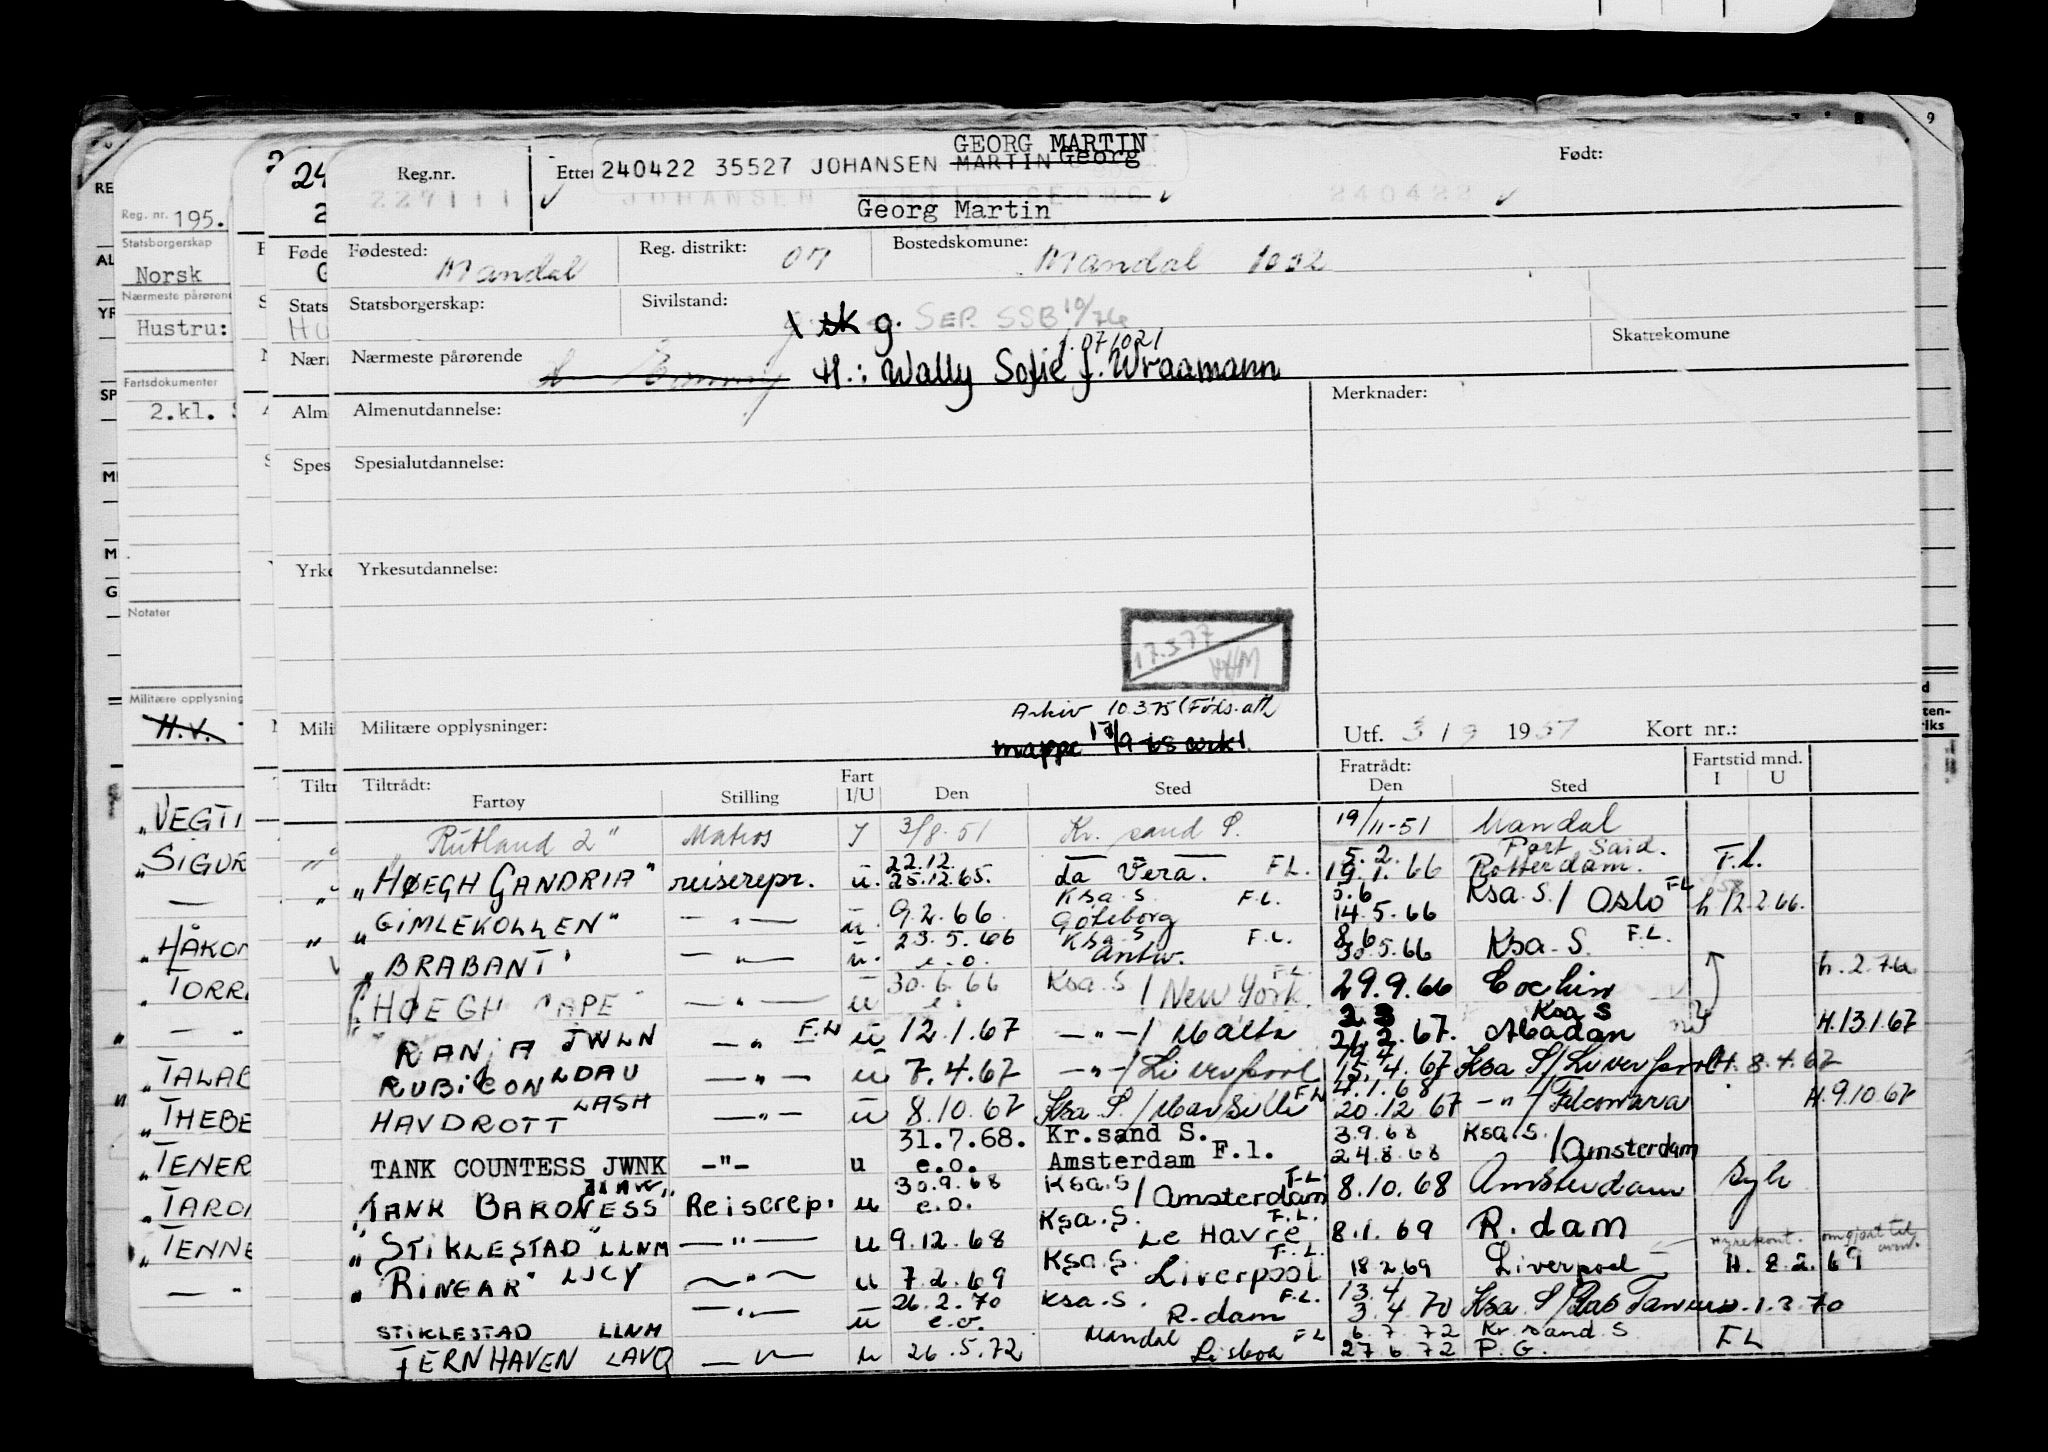 GEORG MARTIN
Reg.nr. Etter 240422 35527 JOHANSEN MARTIN Georg Født:
227111 JOHANSEN MARTIN GEORG 240422
Georg Martin
Fødested: Mandal Reg. distrikt: 07 Bostedskomune: Mandal 1002
Statsborgerskap: Sivilstand: g. SEP. SSB 10/76
Skattekomune
f. 071021
Nærmeste pårørende H.: Wally Sofie f. Wraamann
Almenutdannelse: Merknader:
Spesialutdannelse:
Yrkesutdannelse:
17.3.77
Arkiv 10.3.75 (Føds.att)
Militære opplysninger: mappe 17/9
Utf. 3 / 9 1957 Kort nr.:
Tiltrådt: Fart Fratrådt: Fartstid mnd.
Fartøy Stilling I/U Den Sted Den Sted I U
"Rutland 2" Matros I 3/8.51 Kr. sand S. 19/11-51 Mandal
22.12. 5.2. Port Said.
"HØEGH GANDRIA" reiserepr. u. 25.12.65. La Vera. F.L. 19.1.66 Rotterdam. F.L.
Ksa.S F.L. 5.6 Ksa.S./Oslo F.L
"GIMLEKOLLEN" —"— u. 9.2.66 Göteborg 14.5.66 h 12.2.66.
23.5.66 Ksa.S F.L. 8.6 Ksa.S. F.L.
"BRABANT" —"— u. e.o. Antw. 30.5.66
30.6.66 F.L. h.2.7.66
"HØEGH CAPE" —"— u e. Ksa.S / New York. 29.9.66 Cochin
23 Ksa S
RANJA JWLN —"— F.L u 12.1.67 —"—/ Malta 21.2.67. Abadan H.13.1.67
19.4
RUBICON LDAU —"— u 7.4.67 —"—/ Liverpool 15.4.67 Ksa S/Liverpool H.8.4.67
4.1.68
HAVDROTT LASH —"— u 8.10.67 Ksa S./Marseille F.L 20.12.67 —"—/ H.9.10.67
31.7.68. Kr.sand S. 3.9.68 Ksa.S.
TANK COUNTESS JWNK -"- u e.o. Amsterdam F.l. 24.8.68 /Amsterdam
30.9.68 Ksa.S F.L.
"TANK BARONESS" Reiserep. u e.o. /Amsterdam 8.10.68 Amsterdam Syk
Ksa.S. F.L.
"STIKLESTAD" LLNM —"— u 9.12.68 Le Havre 8.1.69 R.dam
Ksa.S. F.L. Hyrekont. omgjort til
"RINGAR" LJCY —"— u 7.2.69 Liverpool 18.2.69 Liverpool H. 8.2.69
26.2.70 Ksa.S. F.L. 13.4
STIKLESTAD LLNM —"— u e.o. R.dam 3.4.70 Ksa S/ 1.3.70
Mandal F L 6.7.72 Kr.sand.S
FERNHAVEN LAVQ —"— u 26.5.72 Lisboa 27.6.72 P.G. F L
Reg. nr. 195.
Statsborgerskap
Norsk
Nærmeste pårørend
Hustru:
Fartsdokumenter
2.kl.
Notater
Militære opplysning
H.V.
"VEGTI
"SIGUR
"HÅKON
"TORR
"TALAB
"THEBE
"TENER
"TARO
"TENNE